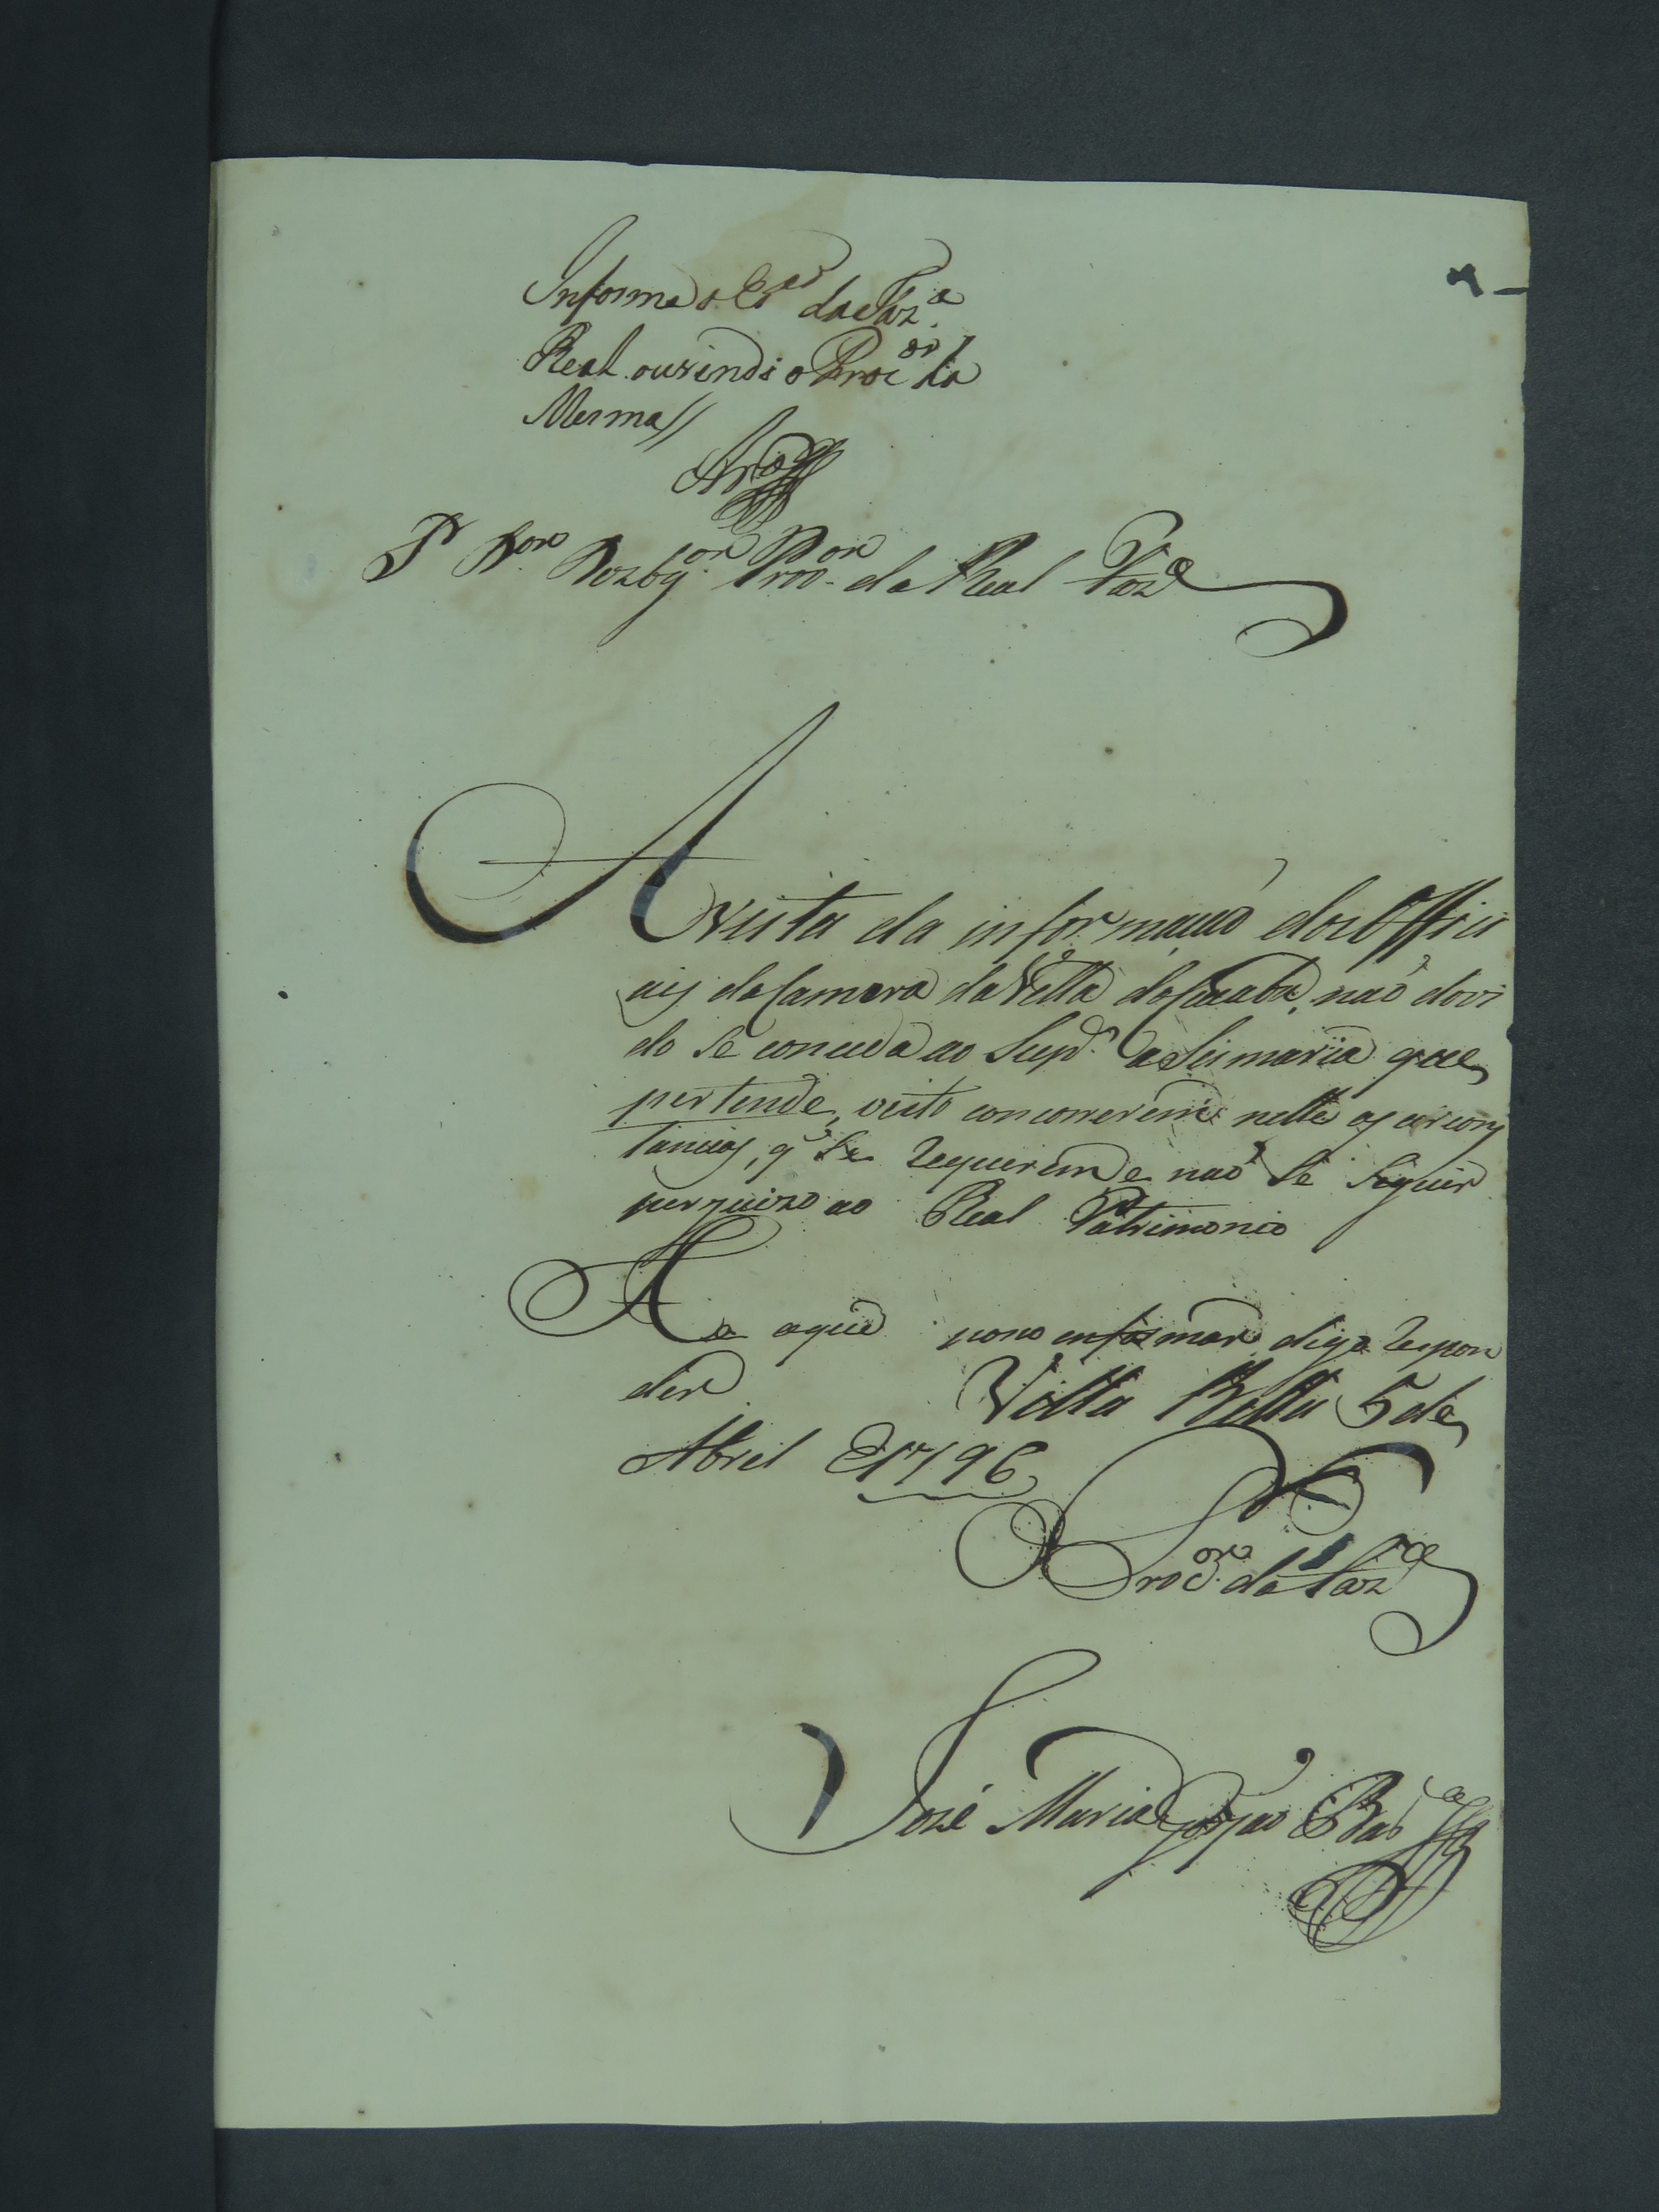 Informe o da Faz.ª
Real ouvindo o Proc.or da
Mesma//
S.r D.or Dezbg.or Prov.or da Real Faz.ª
A vista da informação dos Offici
ais da Camara da Villa do Cuiabá, não dovi
do se conceda ao Sup.e a Sismaria que
pertende, visto concorrerem nelle as circons
tancias, q̃ se requerem e não se siguir
perjuizo ao Real Patrimonio
He o que posso informar digo respon
der Villa Bella 5 de
Abril de 1796
O Proc.or da Faz.ª
José Maria